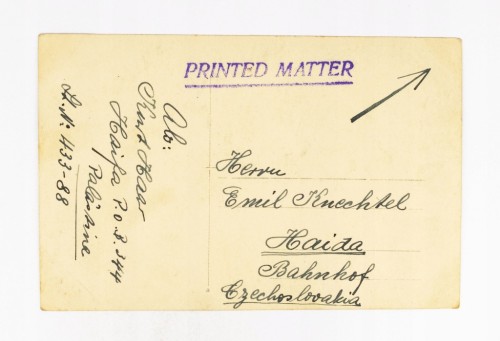 PRINTED MATTER
Ab:
Kurt
Haifa P.O.B 544
Palästine
433-88
Herrn
Emil Knechtel
Haida
Bahnhof
Czechoslovakia